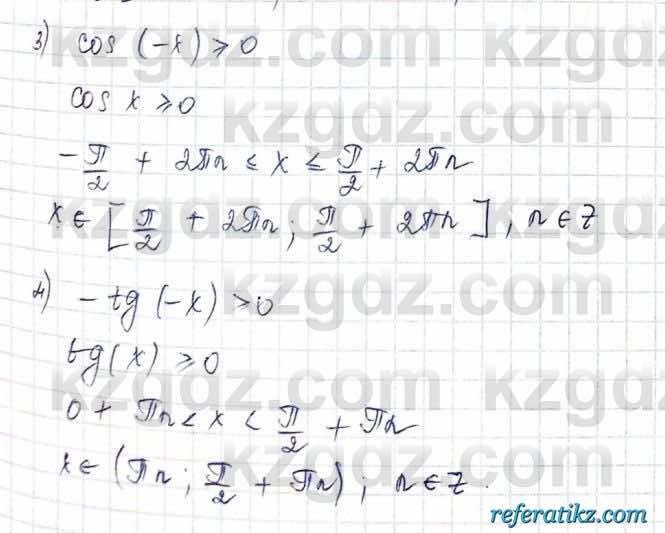 3) cos (-x) ⩾ 0
cos x ⩾ 0
-π/2 + 2πn ≤ x ≤ π/2 + 2πn
x ∈ [π/2 + 2πn ; π/2 + 2πn] ; n ∈ Z
4) -tg (-x) > 0
tg (x) ⩾ 0
0 + πn < x < π/2 + πn
x ∈ (πn ; π/2 + πn) ; n ∈ Z.
kzgdz.com
referatikz.com